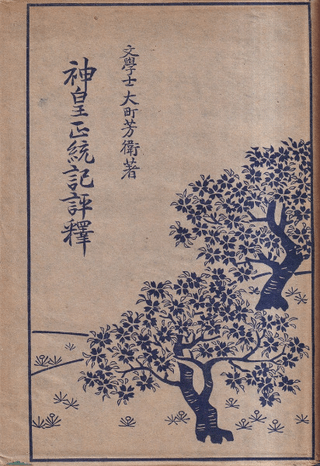 文學士大町芳衛著
神皇正統記評釋